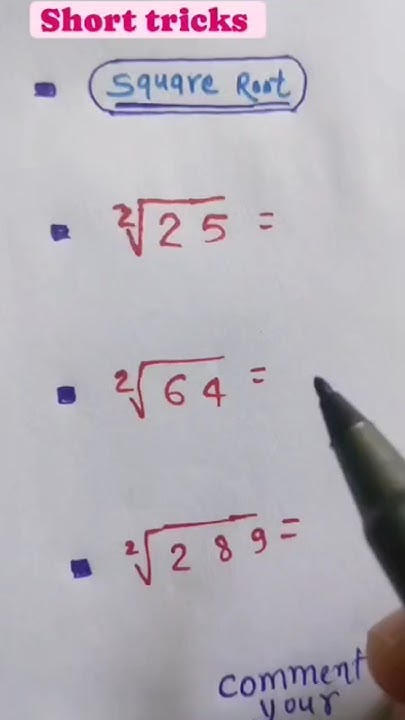 Short tricks
Square Root
²√25 =
²√64 =
²√289 =
comment
your